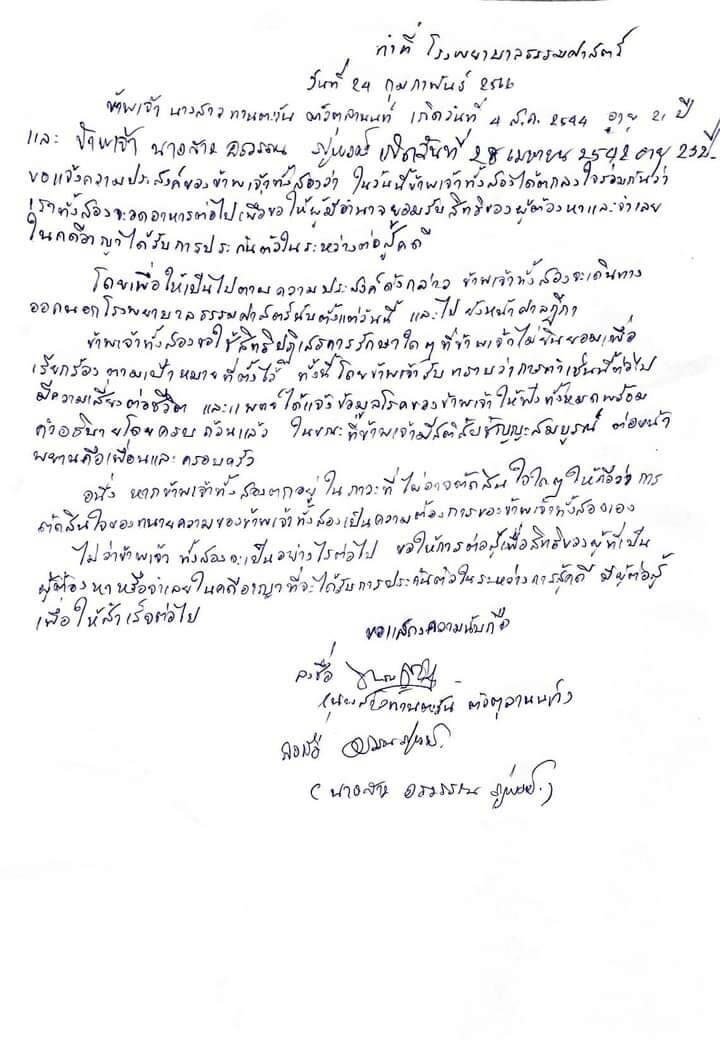 ทำที่ โรงพยาบาลธรรมศาสตร์
วันที่ 24 กุมภาพันธ์ 2566
ข้าพเจ้า นางสาวทานตะวัน ตัวตุลานนท์ เกิดวันที่ 4 ส.ค. 2544 อายุ 21 ปี
และ ข้าพเจ้า นางสาว อรวรรณ ภู่พงษ์ เกิดวันที่ 28 เมษายน 2542 อายุ 23 ปี
ขอแจ้งความประสงค์ของข้าพเจ้าทั้งสองว่า ในวันนี้ข้าพเจ้าทั้งสองได้ตกลงใจร่วมกันว่า
เราทั้งสองจะอดอาหารต่อไปเพื่อขอให้ผู้มีอำนาจยอมรับสิทธิของผู้ต้องหาและจำเลย
ในคดีอาญาได้รับการประกันตัวในระหว่างต่อสู้คดี
โดยเพื่อให้เป็นไปตามความประสงค์ดังกล่าว ข้าพเจ้าทั้งสองจะเดินทาง
ออกนอกโรงพยาบาลธรรมศาสตร์นับตั้งแต่วันนี้ และไปยังหน้าศาลฎีกา
ข้าพเจ้าทั้งสองขอใช้สิทธิปฏิเสธการรักษาใดๆที่ข้าพเจ้าไม่ยินยอมเพื่อ
เรียกร้องตามเป้าหมายที่ตั้งไว้ ทั้งนี้โดยข้าพเจ้ารับทราบว่าการทำเช่นนี้ต่อไป
มีความเสี่ยงต่อชีวิต และแพทย์ได้แจ้งข้อมูลโรคของข้าพเจ้าให้ฟังทั้งหมดพร้อม
คำอธิบายโดยครบถ้วนแล้ว ในขณะที่ข้าพเจ้ามีสติสัมปชัญญะสมบูรณ์ ต่อหน้า
พยานคือเพื่อนและครอบครัว
อนึ่ง หากข้าพเจ้าทั้งสองตกอยู่ในภาวะที่ไม่อาจตัดสินใจใดๆ ให้ถือว่าการ
ตัดสินใจของทนายความของข้าพเจ้าทั้งสองเป็นความต้องการของข้าพเจ้าทั้งสองเอง
ไม่ว่าข้าพเจ้า ทั้งสองจะเป็นอย่างไรต่อไป ขอให้การต่อสู้เพื่อสิทธิของผู้ที่เป็น
ผู้ต้องหาหรือจำเลยในคดีอาญาที่จะได้รับการประกันตัวในระหว่างการสู้คดี มีผู้ต่อสู้
เพื่อให้สำเร็จต่อไป
ขอแสดงความนับถือ
ลงชื่อ
(นางสาวทานตะวัน ตัวตุลานนท์)
ลงชื่อ
(นางสาว อรวรรณ ภู่พงษ์)